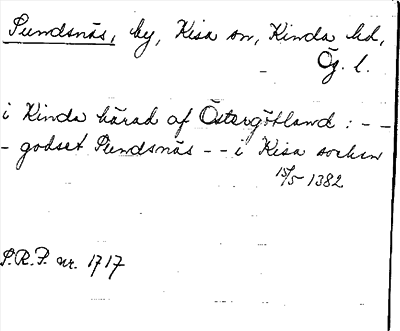 Pundsnäs, by, Kisa sn, Kinda hd,
Ög. l.
i Kinda härad af Östergötland : - -
- godset Pundsnäs - - i Kisa socken
15/5 1382
S.R.P. nr. 1717